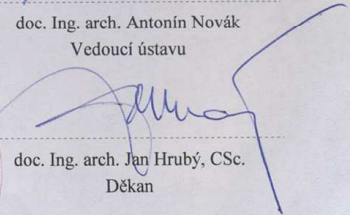 doc. Ing. arch. Antonín Novák
Vedoucí ústavu
doc. Ing. arch. Jan Hrubý, CSc.
Děkan